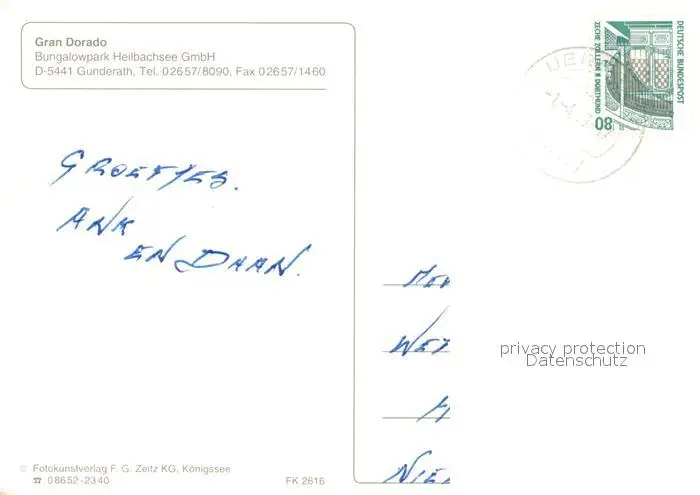 Gran Dorado
Bungalowpark Heilbachsee GmbH
D-5441 Gunderath, Tel. 02657/8090, Fax 02657/1460
DEUTSCHE BUNDESPOST
ZECHE ZOLLERN II DORTMUND
80
GROETJES.
ANK
EN DAAN.
privacy protection
Datenschutz
© Fotokunstverlag F. G. Zeitz KG, Königssee
☎ 08652-2340
FK 2616